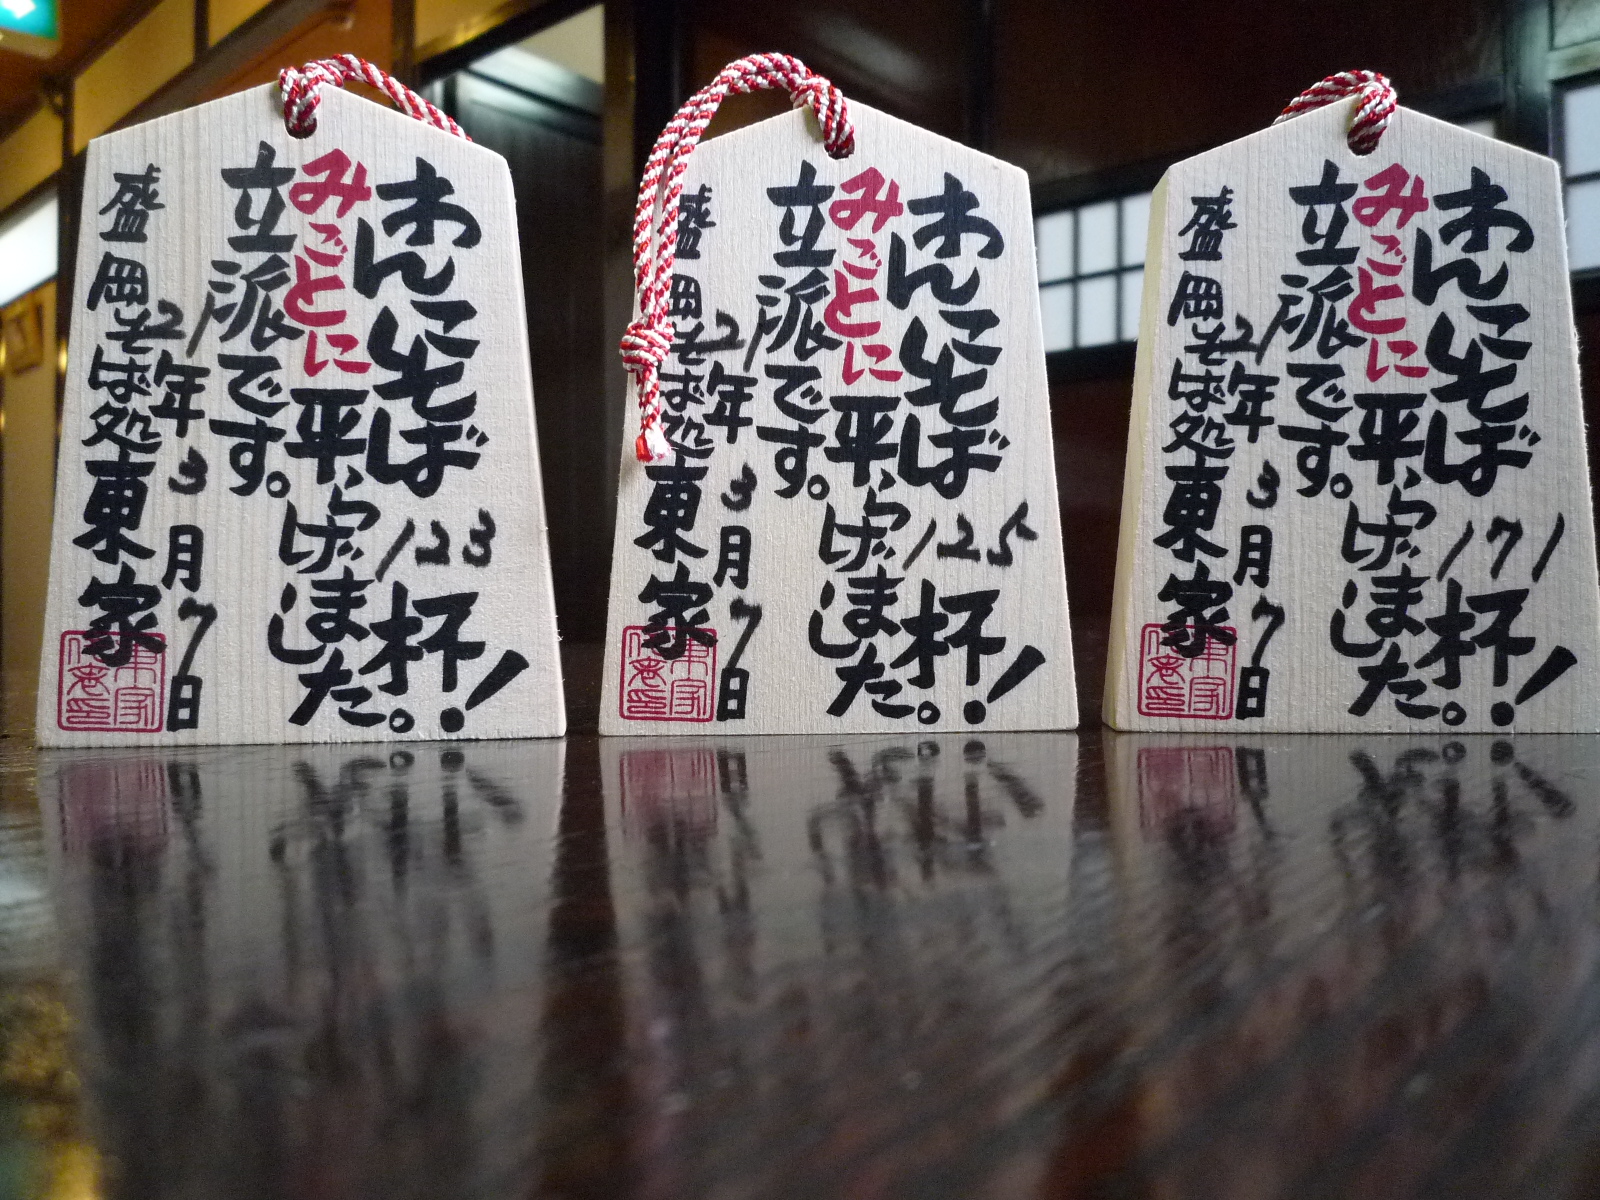 わんこそば123杯!
みごとに平らげました。
立派です。
21年3月7日
盛岡そば処東家
東家
わんこそば125杯!
みごとに平らげました。
立派です。
21年3月7日
盛岡そば処東家
東家
わんこそば171杯!
みごとに平らげました。
立派です。
21年3月7日
盛岡そば処東家
東家